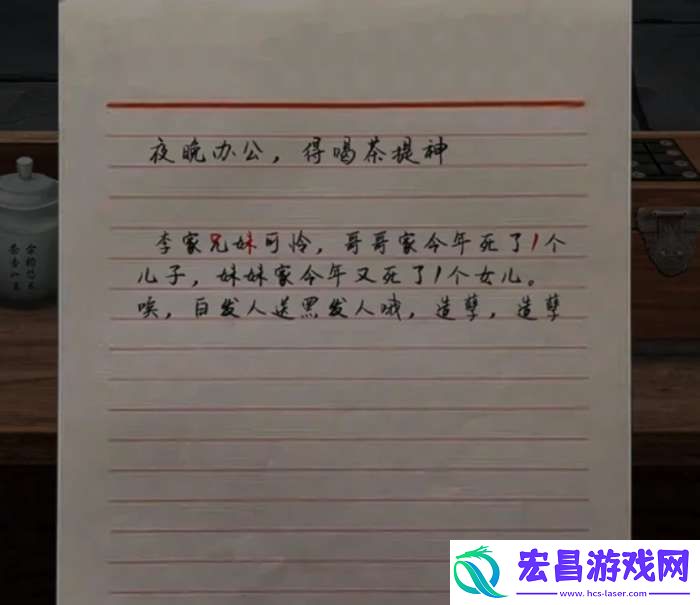 夜晚办公，得喝茶提神
李家兄妹可怜，哥哥家今年死了1个
儿子，妹妹家今年又死了1个女儿。
唉，白发人送黑发人哦，造孽，造孽
宏昌游戏网
www.hcs-laser.com